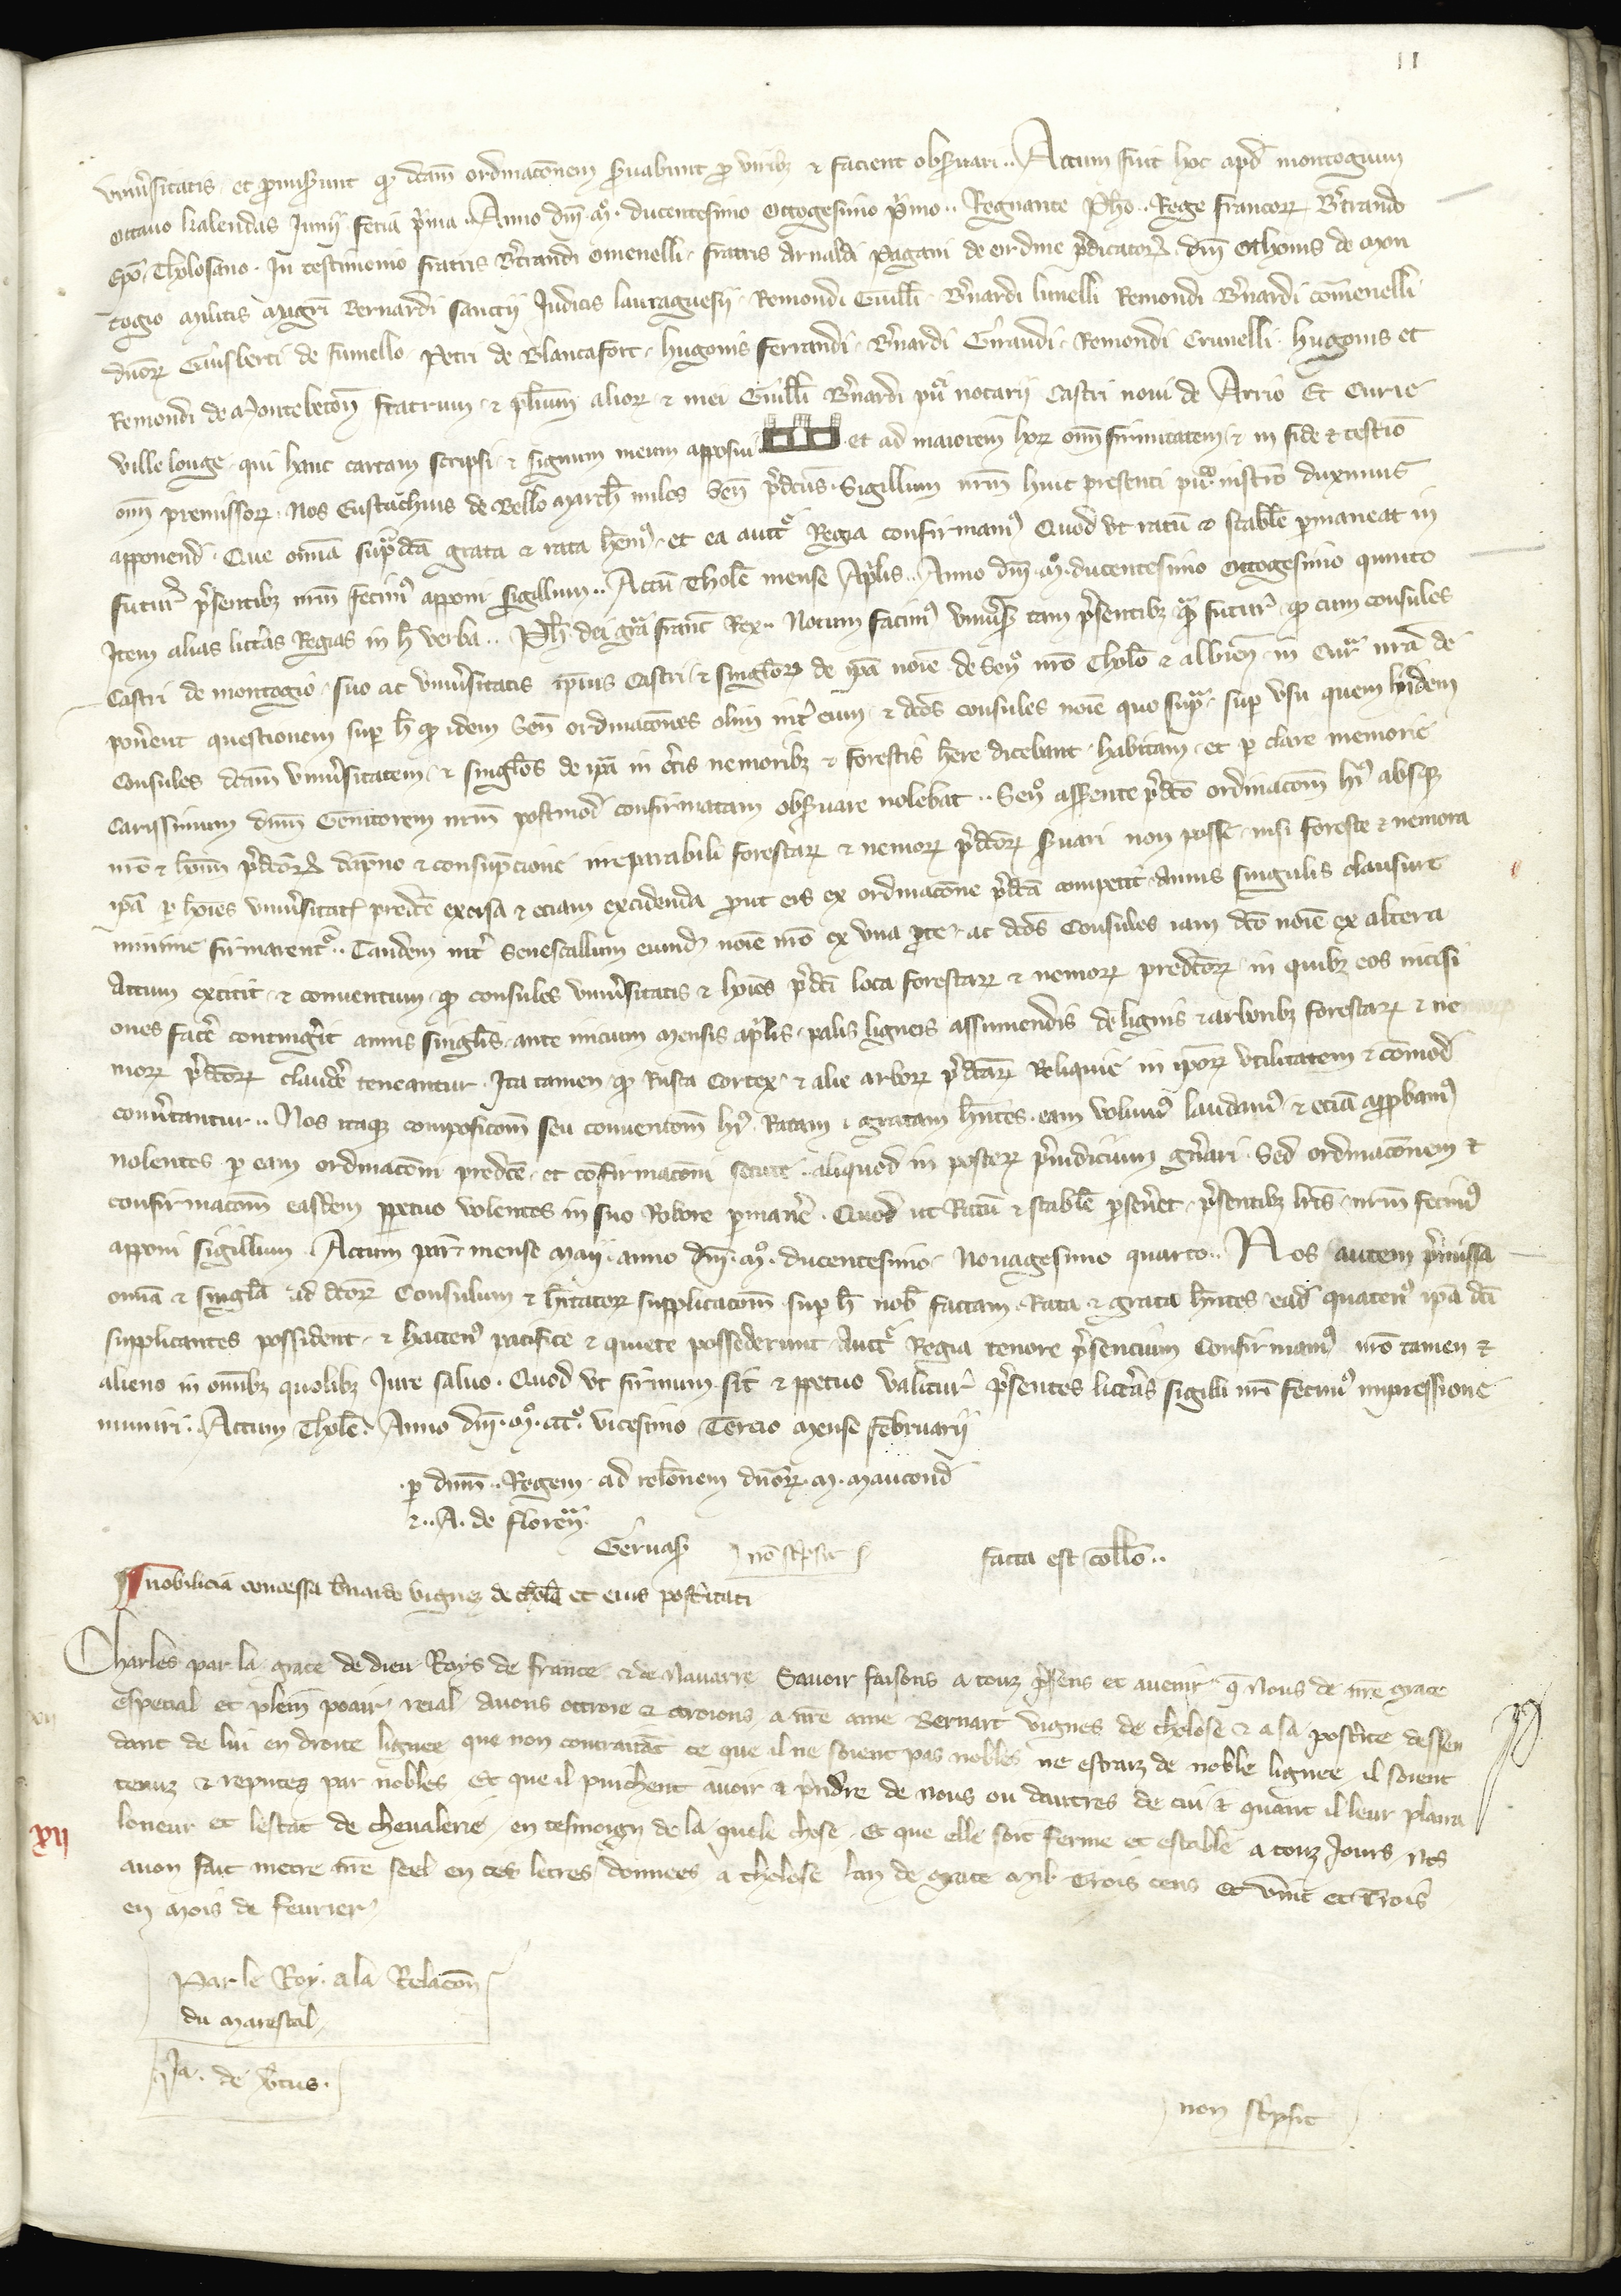 11
vniuersitatis et promiserunt q dcam ordinaconem seruabunt pro viribz & facient obseruari .. Actum fuit hoc apd montogium
octauo kalendas Junii feria prima .. Anno dni mo ducentesimo octogesimo primo .. Regnante Pho .. Rege francorz Bertrando
Epo Tholosano . In testimonio fratris Bertrandi omenelli . fratris Arnaldi Pagani de ordine predicatorz dni Othonis de Mon
togio militis magri Bernardi sanctii Judicis lauraguesii . Remondi Guilli . Bernardi lunelli Remondi Bernardi comenelli
dnorz Guisberti de fumello . Petri de Blancafort . hugonis ferrandi . Bernardi Giraudi . Remondi Crunelli . hugonis et
Remondi de Montebeton fratrum & plium aliorz & mei Guilli Bernardi pu notarii Castri noui de Arrio Et Curie
ville longe qui hanc cartam scripsi & signum meum apposui et ad maiorem horz omi firmitatem & in fide & testio
om premissorz . Nos Eustachius de Bello march miles Sen predcus . Sigillum nrm huic presenti pu instro duximus
apponend . Que omia supradca grata & rata hemus . et ea auct Regia confirmamus Quod vt ratu & stabile permaneat in
futur presentibz nrm fecimus apponi sigillum .. Actu Thole mense Aplis .. Anno dni mo ducentesimo octogesimo quinto
Item alias litteras Regias in h verba .. Ph dei gra franc Rex .. Notum facimus vniuersis tam presentibz qua futur q cum consules
Castri de montogio . suo ac vniuersitatis ipius Castri & singlorz de ipa noie de Sen nro Tholo & albien in Cur nra de
ponerent questionem super h q idem Sen ordinacones olim inter eum & dcos consules noie quo supra . super vsu quem hidem
Consules dcam vniuersitatem & singlos de ipa in certis nemoribz & forestis here dicebant . habitam . et per clare memorie
Carissimum dnm Genitorem nrm postmod confirmatam obseruare nolebat .. Sen asserente predco ordinacom hi absqz
nro & hoim predcorz dapno & consupcione irreparabili forestarz & nemorz predcorz seruari non posse . nisi foreste & nemora
ipa per hoies vniuersitatis predce excisa & eciam excidenda prout eis ex ordinacone predca competit . Annis singulis clausure
minime firmarentur .. Tandem inter Senescallum eumd noie nro ex vna parte . ac dcos Consules iam dco noie ex altera
Actum extitit & conuentum q consules vniuersitatis & hoies predci loca forestarz & nemorz predcorz in quibz eos incisi
ones facere contingerit annis singlis ante inicium mensis aplis . palis ligneis assumendis de lignis & arboribz forestarz & ne
morz predcorz claudere teneantur . Ita tamen q Rusta Cortex & alie arborz predcarz Reliquie in iporz vtilitatem & comod
conuertantur .. Nos itaqz composicom seu conuentom hi Ratam & gratam hentes . eam volumus laudamus & eciam approbamus
nolentes per eam ordinacom predce et confirmacom secute . aliquod in posterz preiudicium generari . Sed ordinaconem &
confirmacom easdem perpetuo volentes in suo Robore permanere . Quod ut Ratu & stabile perseueret . presentibz lris nrm fecimus
apponi sigillum . Actum par mense maii . anno dni mo ducentesimo . Nonagesimo quarto .. Nos autem premissa
omia & singla ad dcorz Consulum & hitatorz supplicacom super h nob factam . Rata & grata hentes ead quatenus ipa dci
supplicantes possident & hactenus pacifice & quiete possederunt Auct Regia tenore presencium Confirmamus nro tamen &
alieno in omibz quolibz Jure saluo . Quod vt firmum sit & perpetuo valitur presentes litteras sigilli nri fecimus impressione
muniri . Actum Thole . Anno dni mo ccco vicesimo Tercio mense februarii
per dnm .. Regem . ad relonem dnorz . M . Maucond
& .. A . de floren
Geruas non scripsit facta est collo ..
nobilicia concessa bernardo vignez de thola et eius posteritati
Charles par la grace de dieu Roys de france & de Nauarre Sauoir faisons a touz presens et auenir q Nous de nre grace
especial et plein poair reial . Auons ottroie & otroions . a nre ame Bernart vignes de tholose & a sa posterite dessen
dant de lui en droite lignee que non contrastat ce que il ne soient pas nobles ne estraiz de noble lignee . il soient
tenuz & reputez par nobles . Et que il puichent auoir & prendre de nous ou dautres de cui & quant il leur plaira
loneur et lestat de cheualerie . en tesmoign de la quele chose . Et que elle soit ferme et estable a touz Jours . Nos
xii
auon fait mettre nre seel en ces letres donnees a tholose lan de grace Mil Trois cens Et vint et Trois
en mois de feurier
Par le Roy . a la Relacon
du Marescal
Ja . de vertus .
non scripsit